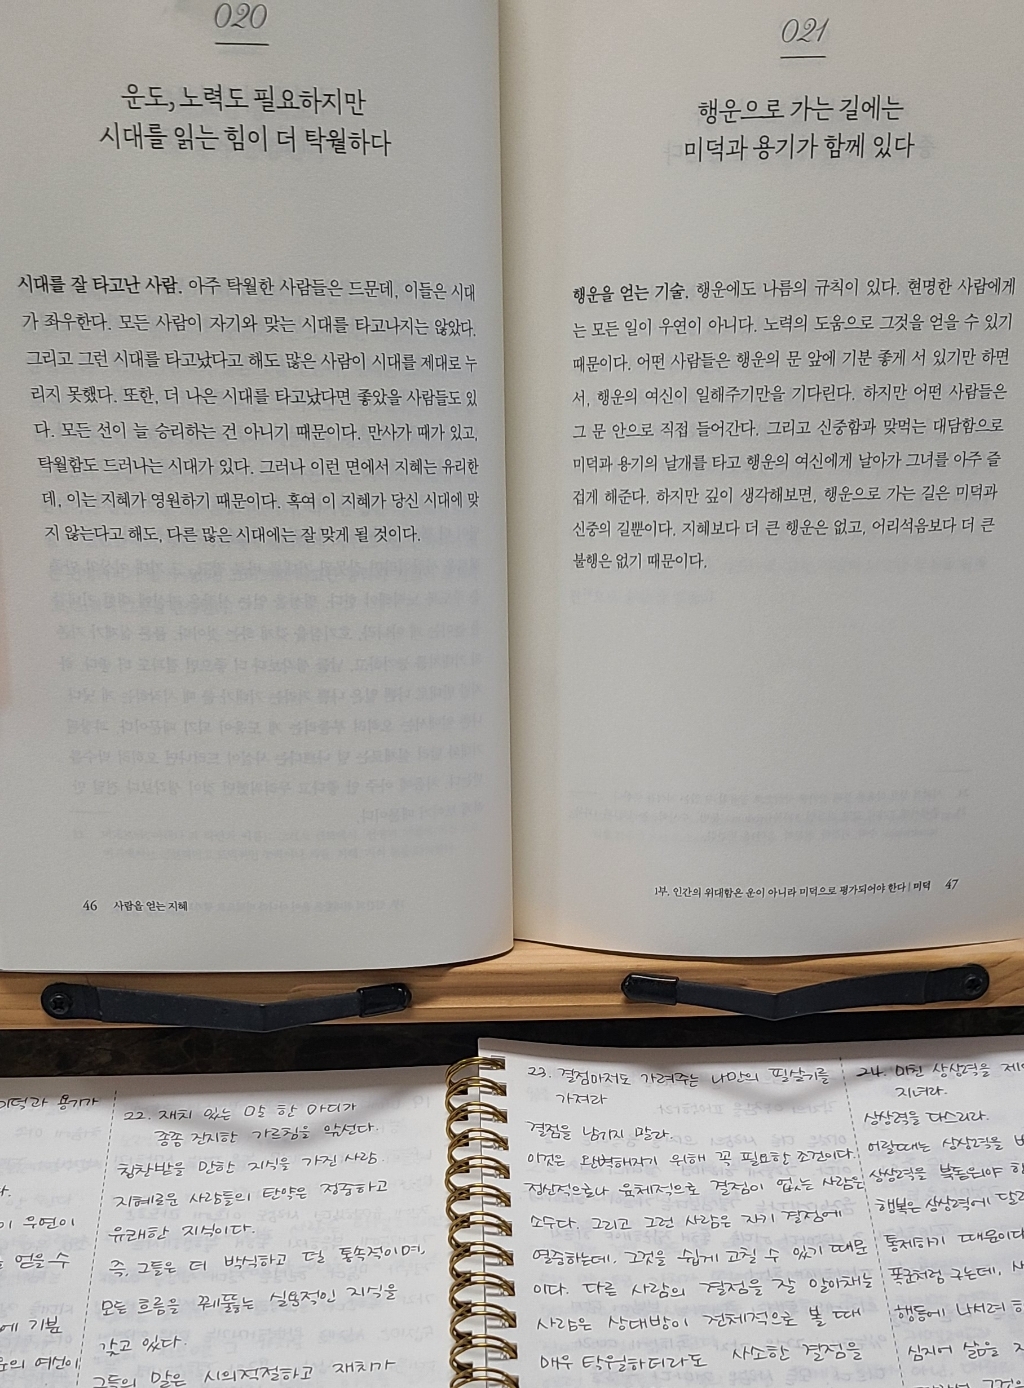 020
운도, 노력도 필요하지만
시대를 읽는 힘이 더 탁월하다
시대를 잘 타고난 사람. 아주 탁월한 사람들은 드문데, 이들은 시대
가 좌우한다. 모든 사람이 자기와 맞는 시대를 타고나지는 않았다.
그리고 그런 시대를 타고났다고 해도 많은 사람이 시대를 제대로 누
리지 못했다. 또한, 더 나은 시대를 타고났다면 좋았을 사람들도 있
다. 모든 선이 늘 승리하는 건 아니기 때문이다. 만사가 때가 있고,
탁월함도 드러나는 시대가 있다. 그러나 이런 면에서 지혜는 유리한
데, 이는 지혜가 영원하기 때문이다. 혹여 이 지혜가 당신 시대에 맞
지 않는다고 해도, 다른 많은 시대에는 잘 맞게 될 것이다.
46 사람을 얻는 지혜
021
행운으로 가는 길에는
미덕과 용기가 함께 있다
행운을 얻는 기술. 행운에도 나름의 규칙이 있다. 현명한 사람에게
는 모든 일이 우연이 아니다. 노력의 도움으로 그것을 얻을 수 있기
때문이다. 어떤 사람들은 행운의 문 앞에 기분 좋게 서 있기만 하면
서, 행운의 여신이 일해주기만을 기다린다. 하지만 어떤 사람들은
그 문 안으로 직접 들어간다. 그리고 신중함과 맞먹는 대담함으로
미덕과 용기의 날개를 타고 행운의 여신에게 날아가 그녀를 아주 즐
겁게 해준다. 하지만 깊이 생각해보면, 행운으로 가는 길은 미덕과
신중의 길뿐이다. 지혜보다 더 큰 행운은 없고, 어리석음보다 더 큰
불행은 없기 때문이다.
1부. 인간의 위대함은 운이 아니라 미덕으로 평가되어야 한다 | 미덕 47
미덕과 용기가
다.
이 우연이
얻을 수
에 기분
의 여신이
22. 재치 있는 말 한 마디가
종종 진지한 가르침을 앞선다.
칭찬받을 만한 지식을 가진 사람.
지혜로운 사람들의 탄약은 정중하고
유쾌한 지식이다.
즉, 그들은 더 박식하고 덜 통속적이며,
모든 흐름을 꿰뚫는 실용적인 지식을
갖고 있다.
그들의 말은 시의적절하고 재치가
23. 결점마저도 가려주는 나만의 필살기를
가져라
결점을 남기지 말라.
이것은 완벽해지기 위해 꼭 필요한 조건이다.
정신적으로나 육체적으로 결점이 없는 사람은
소수다. 그리고 그런 사람은 자기 결점에
열중하는데, 그것을 쉽게 고칠 수 있기 때문
이다. 다른 사람의 결점을 잘 알아채는
사람은 상대방이 전체적으로 볼 때
매우 탁월하더라도 사소한 결점을
24. 미친 상상력을
지녀라.
상상력을 다스리라.
어떨때는 상상력을
상상력을 북돋워야
행복은 상상력에
통제하기 때문이다
폭군처럼 구는데,
행동에 나서려
심지어 삶을